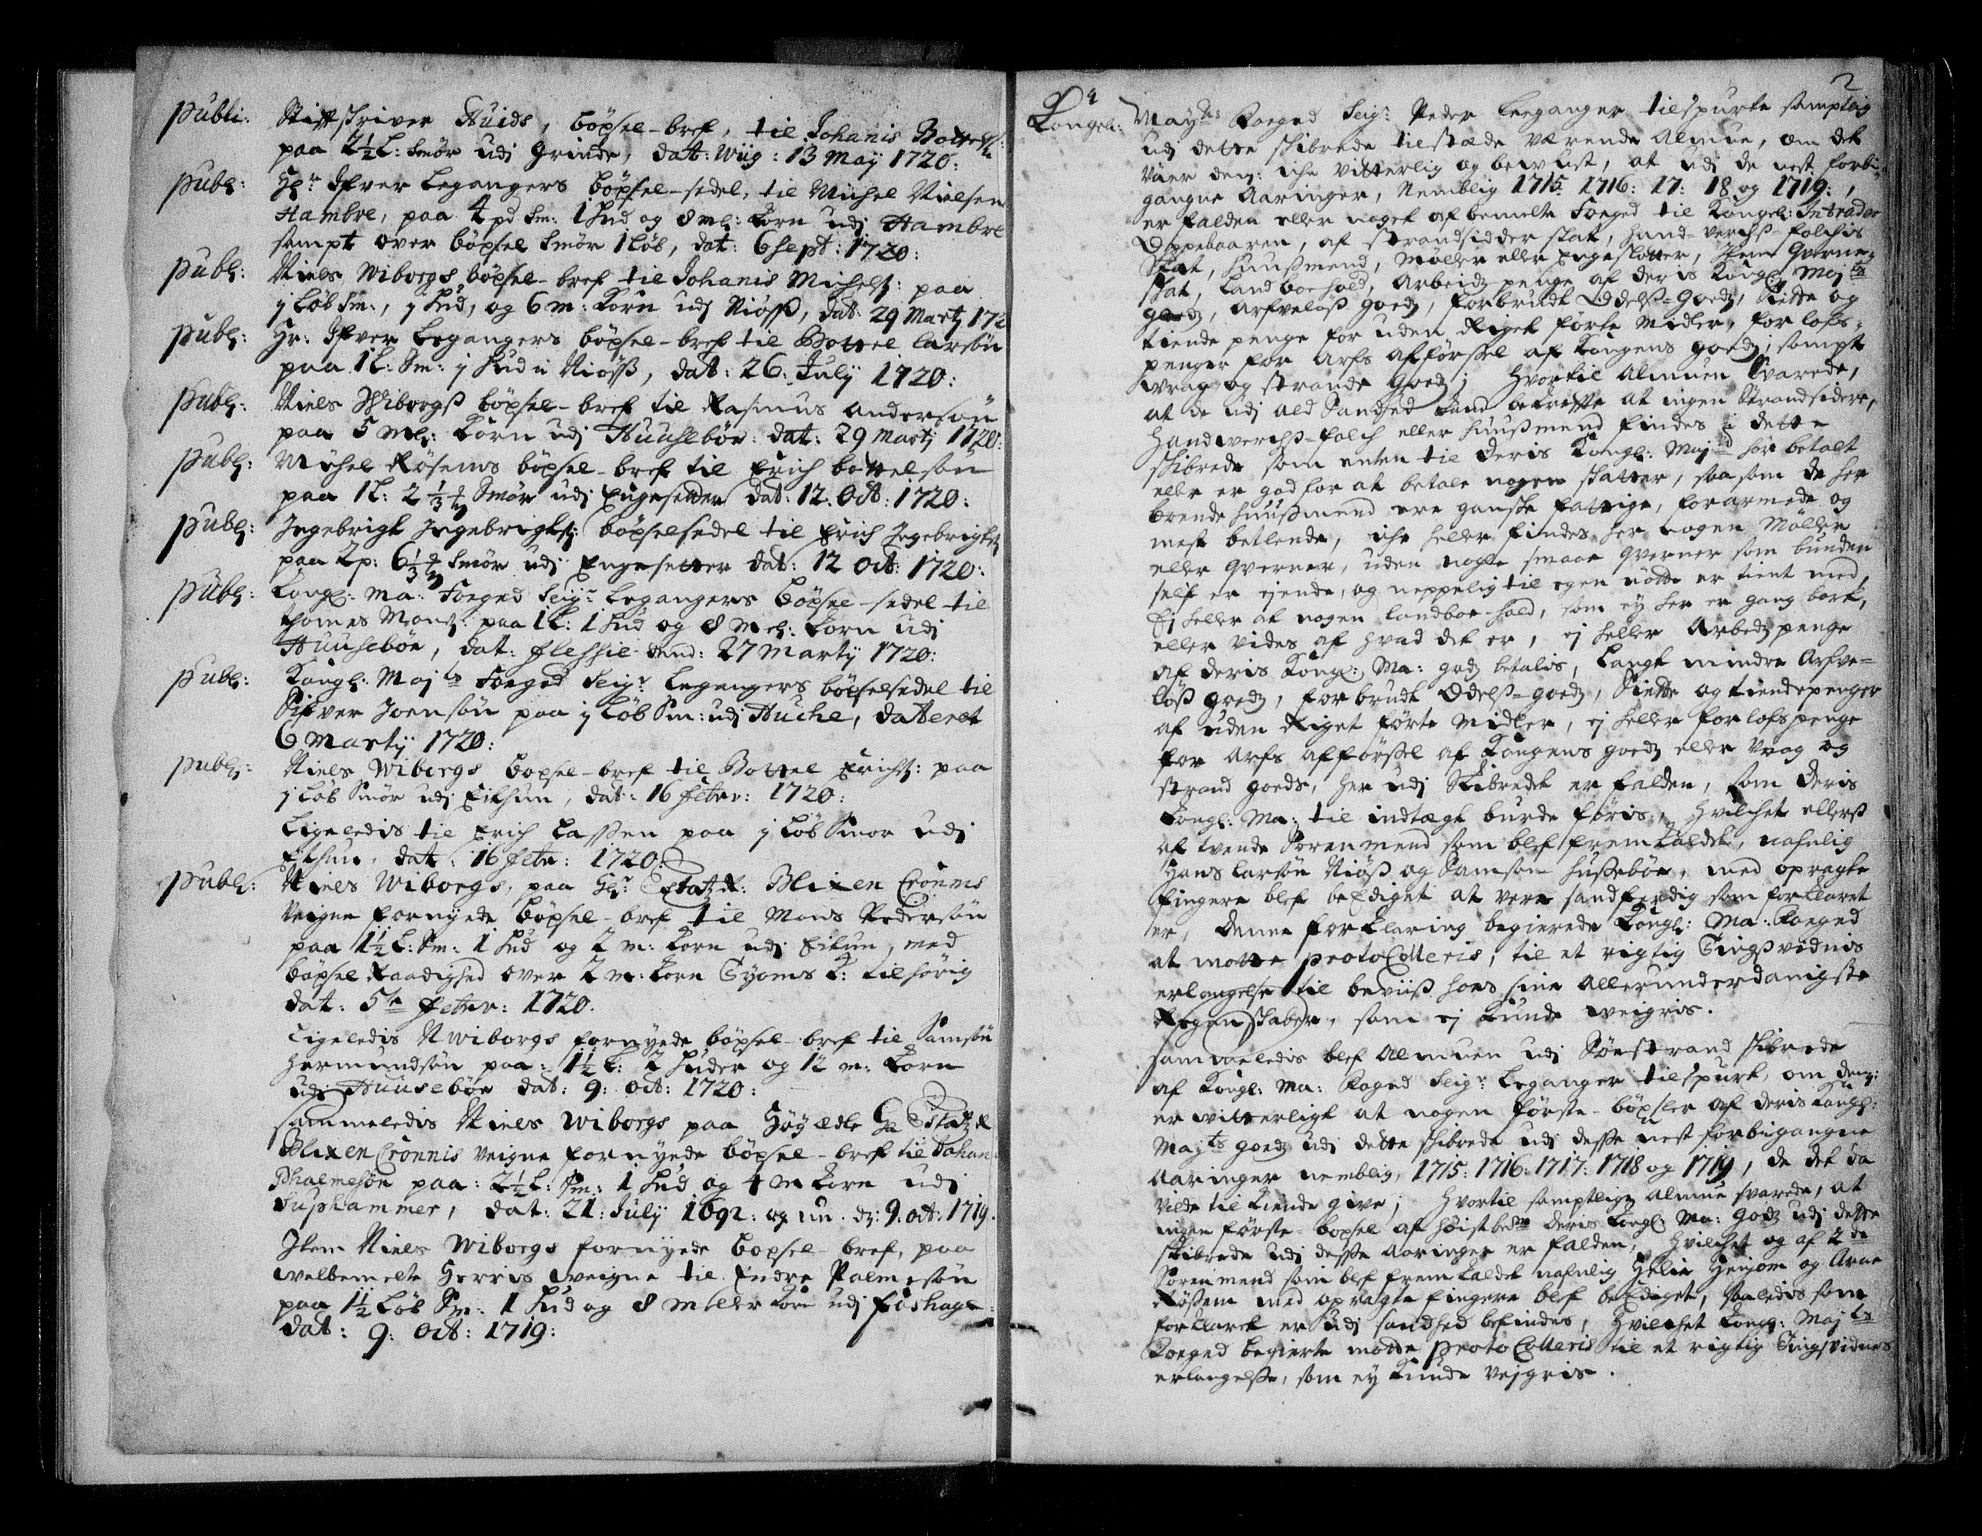 Publ: Stiftskriver Huids, böxsel-bref, til Johanis Bottels:
paa 2½ L: Smör udj Grinde, dat: Wiig: 13 May 1720:
Publ: Hr Ifver Legangers böxsel-sedel, til Michel Nielsen
Hambre, paa 4 pd Sm: 1 Hud og 8 ml: Korn udj Hambre
sampt over böxsel Smör 1 Løb, dat: 6 Sept: 1720:
Publ: Niels Wiborgs böxsel-bref til Johanis Michels: paa
j Løb Sm:, j Hud, og 6 m: Korn udj Niöss, dat: 29 Martj 172
Publ: Hr: Ifver Legangers böxsel-bref til Bottel Larsön
paa 1 L: Sm: j Hud i Niöss, dat: 26: Julij 1720:
Publ: Niels Wiborgs böxsel-bref til Rasmus Andersön
paa 5 Ml: Korn udj Huuseböe: dat: 29 Martj 1720:
Publ: Michel Rösems böxsel-bref til Erich bottelsön
paa 1 L: 2 1/3 Smör udj Engesetter dat: 12. Oct: 1720:
Publ: Ingebrigt Ingebrigts: böxselsedel til Erich Ingebrigts
paa 2 p: 6 1/3 Smör udj Engesetter dat: 12 Oct: 1720:
Publ: Kongl: Ma: Foeged Seigr Legangers böxsel-sedel til
Thomas Mons: paa 1 L: 1 Hud og 8 Ml: Korn udj
Huuseböe, dat: 27 Martij 1720:
Publ: Kongl: Majts Foeged Seigr Legangers böxselsedel til
Sifver Joensön paa j Løb Sm: udj Huche, datteret
6 Martij 1720:
Publ: Niels Wibergs boxsel-bref til Bottel Erichs: paa
j Løb Smör udj Eithun, dat: 16 Febr: 1720:
Ligeledis til Erich Lassen paa j Løb Smör udj
Eithun, dat: 16 Febr: 1720:
Publ: Niels Wiborgs, paa Hr Estatz R: Blixen Crönnis
Veigne fornyede böxsel-bref til Mons Pedersön
paa 1½ L: Sm: 1 Hud og 2 m: Korn udj Eitun, med
böxsel Raadighed over 2 m: Korn K: tilhörig
dat: 5te Febr: 1720.
Ligeledis N Wiborgs fornyede böxsel-bref til Samsön
Hermundsön paa: 1½ L: 2 Huder og 12 m: Korn
udj Huuseböe dat: 9: Oct: 1720:
Sammeledis Niels Wiborgs paa Höyædle Hr Estatz R
Blixen Crönnis Veigne fornyede böxsel-bref til Johan
paa: 2½ L: Sm: 1 Hud og 4 m Korn udj
dat: 21: Julij 1692: og nu d: 9: oct: 1719.
Item Niels Wiborgs fornyede boxsel-bref, paa
velbemelte Herris Weigne til Endre Palmesön
paa 1½ Løb Sm: 1 Hud og 8 meller Korn udj Foshage
dat: 9: Oct: 1719:
2
Kongel: Mayts Foeged Seigr Peder Leganger tilspurte samptlig
udj dette skibrede tilstæde værende Almue, om det
icke vitterlig og bevust, at udj de nest forbi
gangne Aaringer, Nemblig 1715: 1716: 17: 18 og 1719:,
er falden eller noget af bemelte Foeged til Kongel: Intrader
Oppebaaren, af Strandsidder skat, Hand-verchs-folchis
Skat, Huusmend, Møller eller Engeslotter, Item Qverne-
skat, Landboehold, Arbeids penge af deris Kongl: Majts
Goedz, Arfvelös Goedz, forbrudt Odels-Goedz, Siette og
tiende penge for uden Riget förte Midler, forlofs-
penger for Arfs afförssel af Kongens Goedz, sampt
vrag og strande Goedz; Hvortil Almuen Svarede,
at de udj ald Sandhed kand bekrefte at ingen Strandsidere,
Handverchs-folch eller Huusmend findes i dette
skibrede som enten til Deris Kongl: Majtt har betalt
eller er god for at betale nogen skatter, saasom de her
boende Huusmend ere ganske fattige, forarmede og
mest betlende, icke heller findes her nogen Møller
eller Qverner, uden nogle smaae Qverner som bunden
self er ejende, og neppelig til egen nötte er tient med,
Ej heller at nogen landboe-hold, som ey her er gang bart,
eller vides af hvad det er, ej heller Arbeds penge
af deris Kongl: Ma: godz betalis, langt mindre Arfve-
lös goedz, forbrudt Odels-goedz, Siette og tiendepenger
af uden Riget förte Midler, ej heller forlofspenge
for Arfs afförssel af Kongens goedz eller Vrag og
strand goeds, her udj Skibredet er falden, som Deris
Kongl: Ma: til indtægt burde föris, Hvilchet ellers
af tvende Sorenmend som blef fremkaldet, nafnlig
Hans Larsön Niöss og Samson Hussebøe, med opragte
fingere blef beEdiget at vere sandferdig som forklaret
er, Denne forklaring begierede Kongl: Ma: Foeged
at motte protoColleris, til et rigtig Tingsvidnis
erlangelse til beviis hoes sine Allerunderdanigste
Regenskaber, som ej kunde weigris.
Sammeledis blef Almuen udj Söestrand skibrede
af Kongl: Ma: Foged Seigr Leganger tilspurt, om dem:
er vitterligt at nogen förste-böxsler af deris Kongl:
Majts goedz udj dette skibrede udj desse nest forbigangne
Aaringer nemblig, 1715: 1716: 1717: 1718 og 1719, de det da
vilde til kiende give; Hvortil samptlige Almue svarede, at
ingen förste-boxsel af höistbete Deris Kongl: Ma: Godz udj dette
skibrede udj desse Aaringer er falden, Hvilchet og af 2de
Sorenmend som blef fremkaldet nafnlig Helie Henjom og Arne
Rössem med opragte fingere blef beEdiget, saaledis som
forklaret er udj sandhed befindes, Hvilchet Kongl: Majts
Foeged begierte motte protoColleris til et rigtig Tingsvidnes
erlangelse, som ey kunde vejgris.